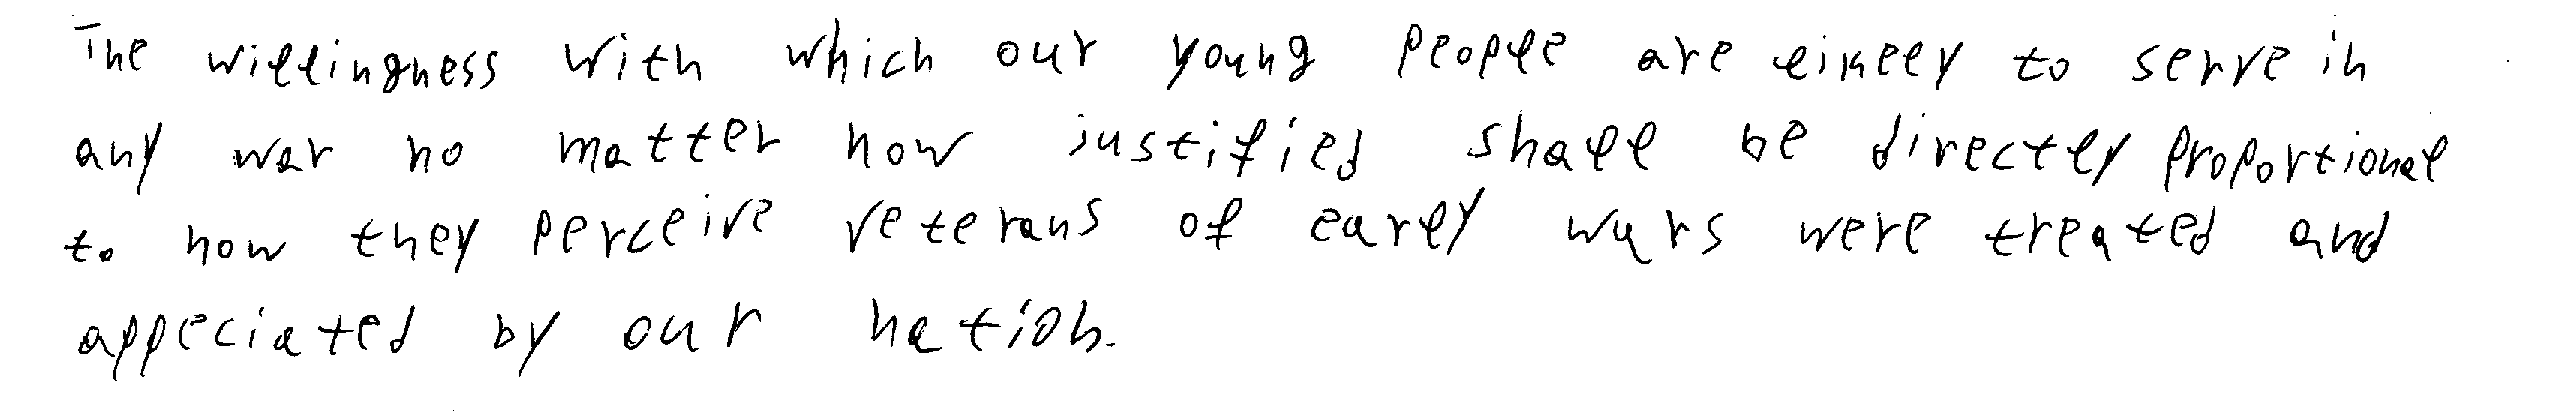 The willingness with which our young people are likely to serve in
any war no matter how justified shall be directly proportional
to how they perceive veterans of early wars were treated and
appeciated by our nation.